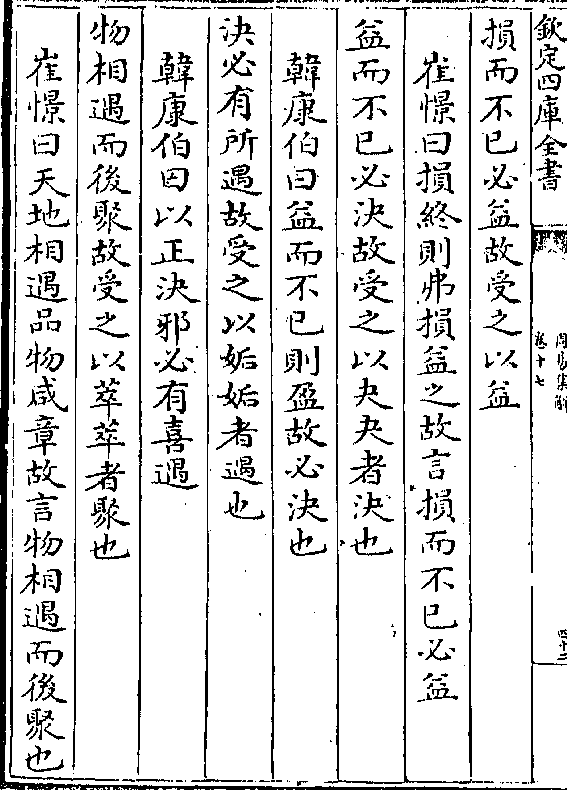 欽定四庫全書
周易集解
卷十七
損而不已必益故受之以益
崔憬曰損終則弗損益之故言損而不已必益
益而不已必決故受之以夬夬者決也
韓康伯曰益而不已則盈故必決也
決必有所遇故受之以姤姤者遇也
韓康伯曰以正決邪必有喜遇
物相遇而後聚故受之以萃萃者聚也
崔憬曰天地相遇品物咸章故言物相遇而後聚也